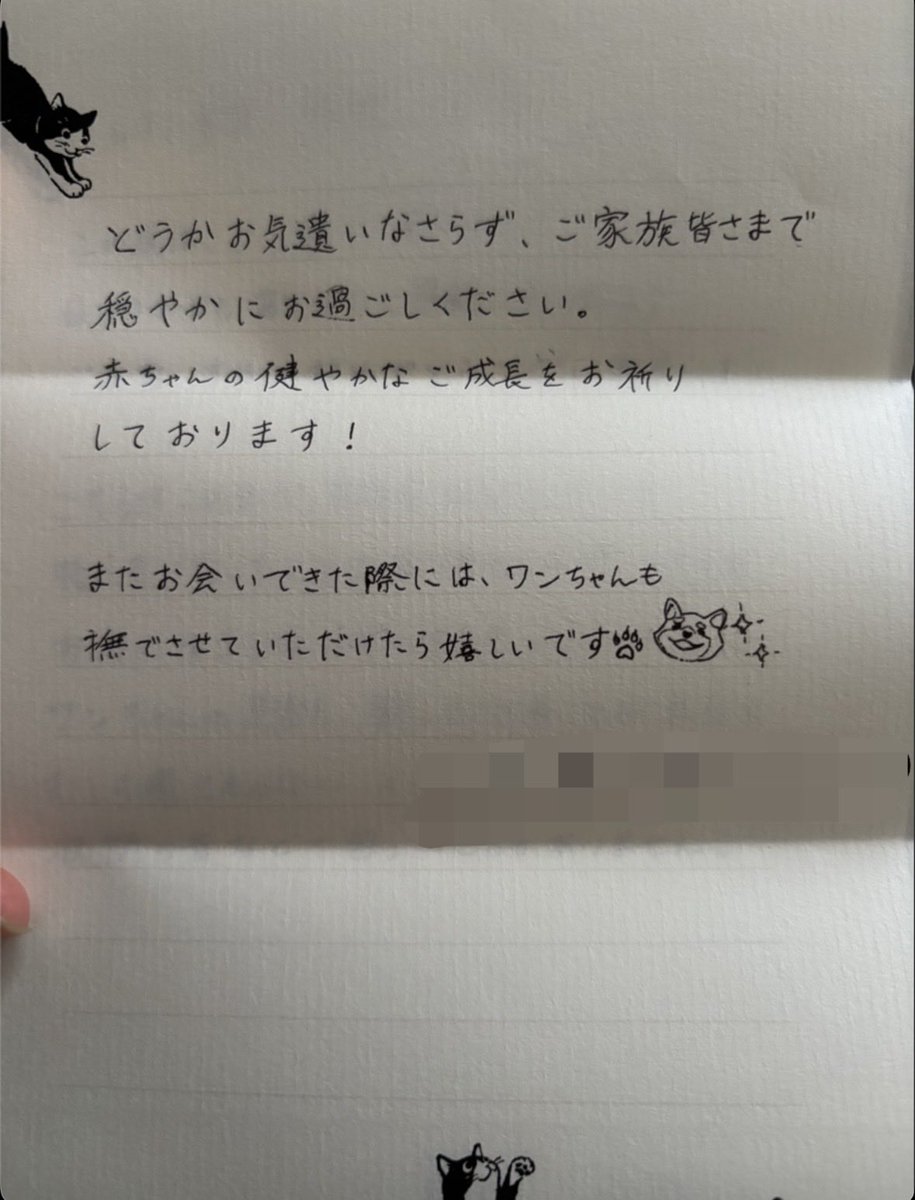 どうかお気遣いなさらず、ご家族皆さまで
穏やかにお過ごしください。
赤ちゃんの健やかなご成長をお祈り
しております!
またお会いできた際には、ワンちゃんも
撫でさせていただけたら嬉しいです